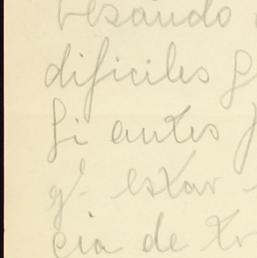 besando
dificiles q
Si antes
q' estar
cia de tr